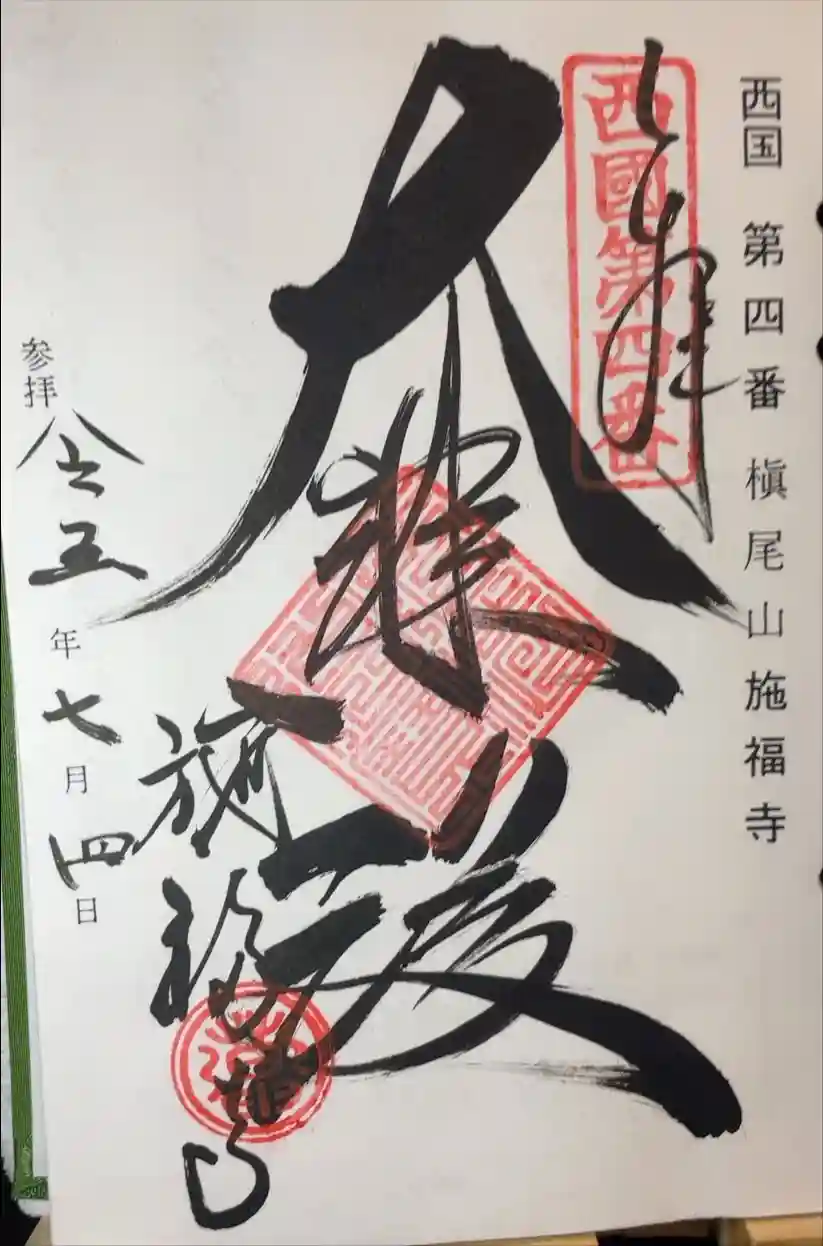 西国 第四番 槇尾山施福寺
西國第四番
奉拝
大悲殿
施福寺
参拝 令五年七月四日